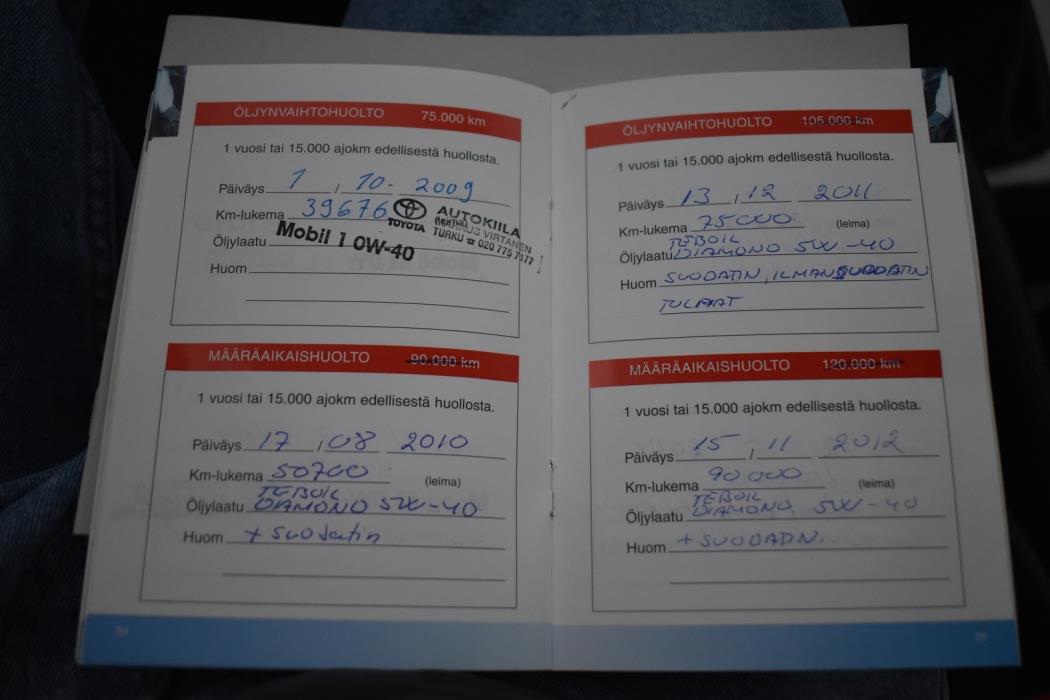 ÖLJYNVAIHTOHUOLTO 75.000 km
1 vuosi tai 15.000 ajokm edellisestä huollosta.
Päiväys 1 / 10 - 2009
Km-lukema 39676 (leima)
TOYOTA
AUTOKIILA
MARKUS VIRTANEN
TURKU ☎ 020 775 7177
Öljylaatu Mobil 1 0W-40
Huom
MÄÄRÄAIKAISHUOLTO 90.000 km
1 vuosi tai 15.000 ajokm edellisestä huollosta.
Päiväys 17 / 08 2010
Km-lukema 50700 (leima)
TEBOIL
Öljylaatu DIAMOND 5W-40
Huom + Suodatin
24
ÖLJYNVAIHTOHUOLTO 105.000 km
1 vuosi tai 15.000 ajokm edellisestä huollosta.
Päiväys 13 / 12 2011
Km-lukema 75000 (leima)
TEBOIL
Öljylaatu DIAMOND 5W-40
Huom SUODATIN, ILMANSUODATIN
TULPAT
MÄÄRÄAIKAISHUOLTO 120.000 km
1 vuosi tai 15.000 ajokm edellisestä huollosta.
Päiväys 15 / 11 2012
Km-lukema 90.000 (leima)
TEBOIL
Öljylaatu DIAMOND 5W-40
Huom + SUODATIN.
25